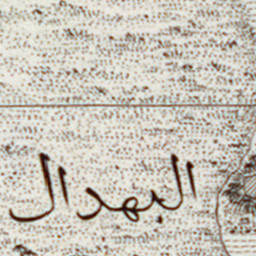 البهدال